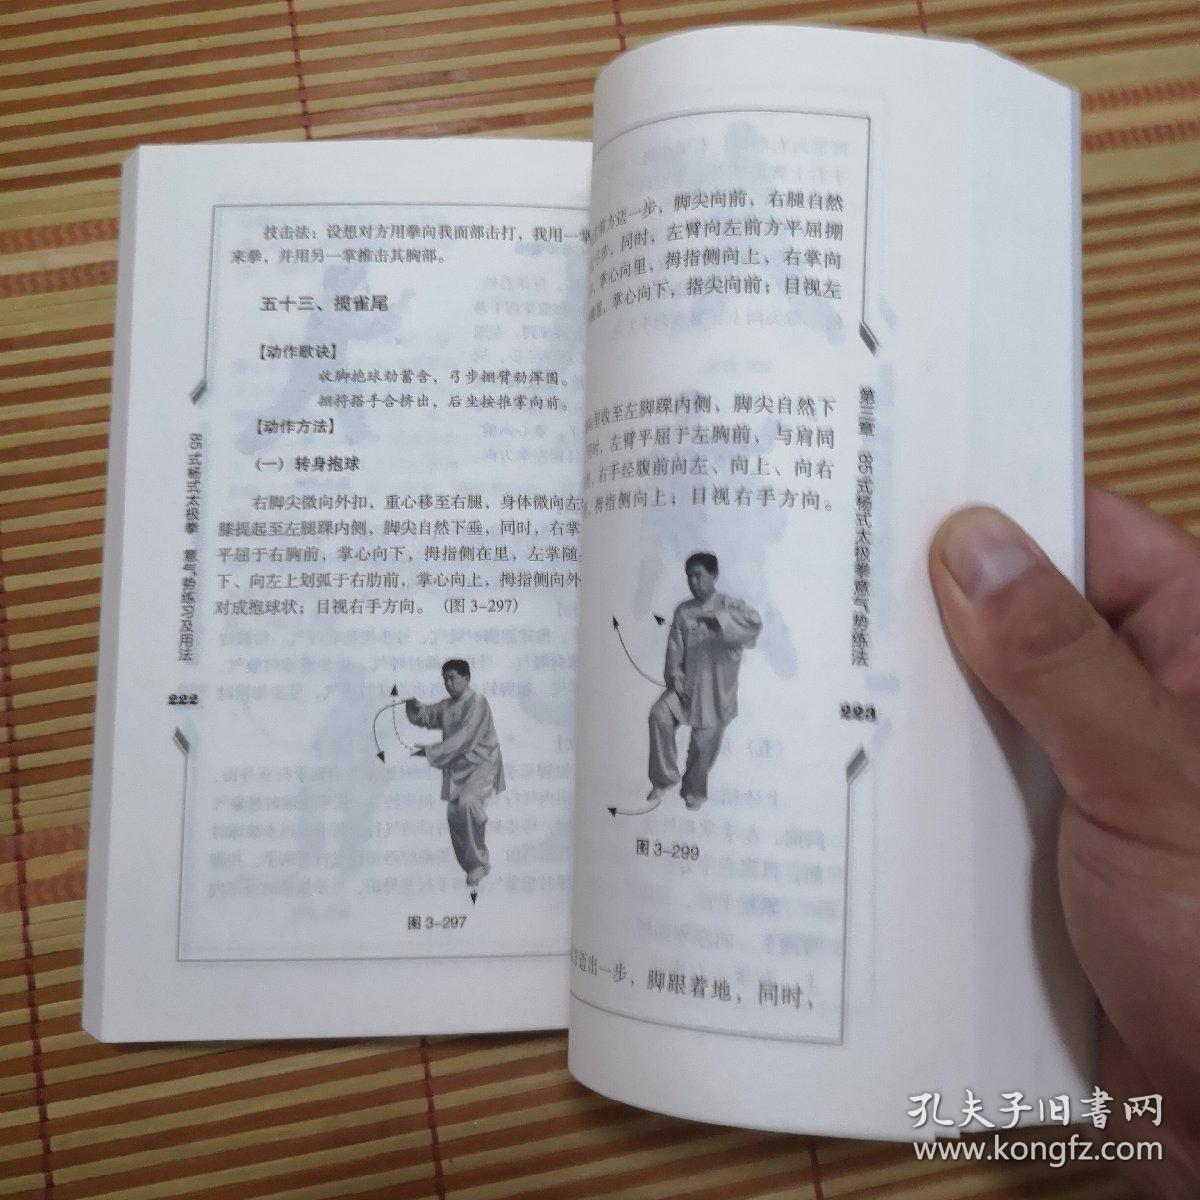 技击法：设想对方用拳向我面部击打，我用一掌
来拳，并用另一掌推击其胸部。
五十三、揽雀尾
【动作歌诀】
收脚抱球劲蓄含，弓步掤臂劲浑圆。
掤捋搭手合挤出，后坐按推掌向前。
【动作方法】
（一）转身抱球
右脚尖微向外扣，重心移至右腿，身体微向左
膝提起至左腿踝内侧，脚尖自然下垂，同时，右掌
平屈于右胸前，掌心向下，拇指侧在里，左掌随
下、向左上划弧于右肋前，掌心向上，拇指侧向外
对成抱球状；目视右手方向。（图 3-297）
图 3-297
85式杨式太极拳 意气势练习及用法
222
方迈一步，脚尖向前，右腿自然
步，同时，左臂向左前方平屈掤
，掌心向里，拇指侧向上，右掌向
，掌心向下，指尖向前；目视左
里收至左脚踝内侧、脚尖自然下
时，左臂平屈于左胸前，与肩同
，右手经腹前向左、向上、向右
，拇指侧向上；目视右手方向。
图 3-299
迈出一步，脚跟着地，同时、
第三章 85式杨式太极拳意气势练法
223
孔夫子旧书网
www.kongfz.com